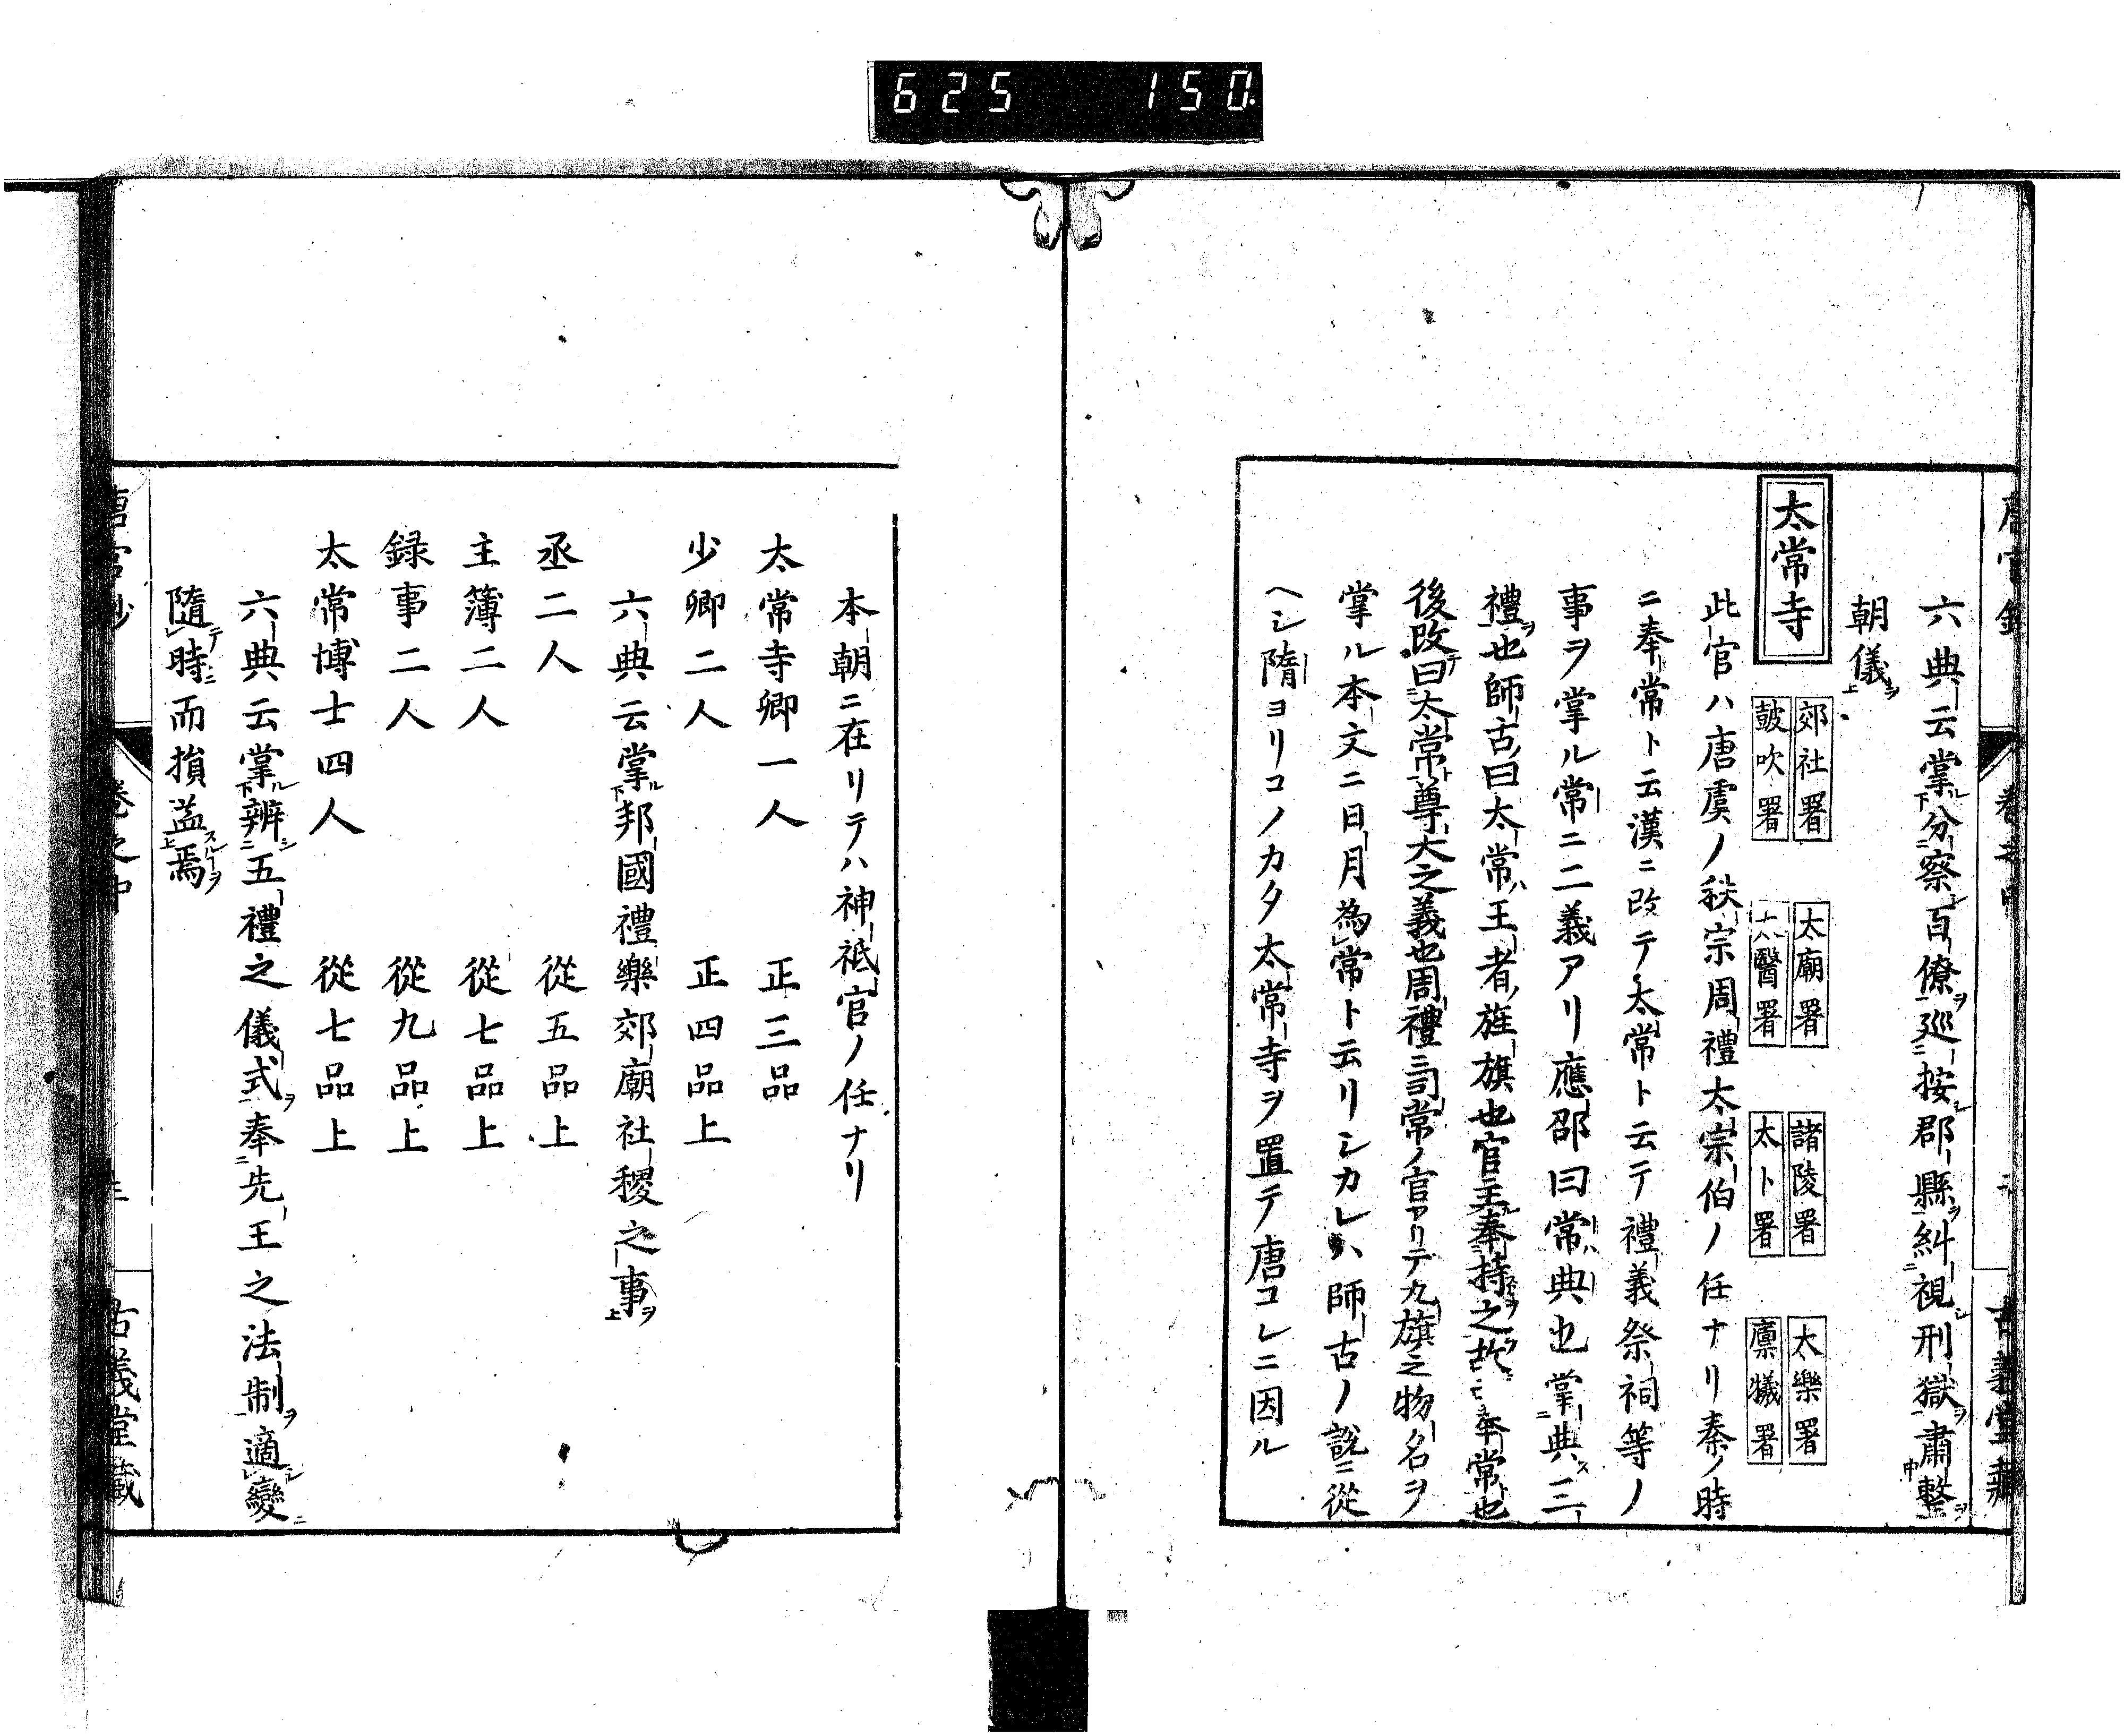 625 150
六典云掌分察百僚巡按郡縣糾視刑獄肅整
朝儀
太常寺
郊社署 太廟署 諸陵署 太樂署
鼓吹署 太醫署 太卜署 廪犧署
此官ハ唐虞ノ秩宗周禮太宗伯ノ任ナリ秦ノ時
ニ奉常ト云漢ニ改テ太常ト云テ禮義祭祠等ノ
事ヲ掌ル常ニ二義アリ應邵曰常典也掌典三
禮也師古曰太常王者旌旗也官主奉持之故曰奉常也
後改曰太常尊大之義也周禮ニ司常ノ官アリテ九旗之物名ヲ
掌ル本文ニ日月為常ト云リシカレハ師古ノ説ニ從
ヘシ隋ヨリコノカタ太常寺ヲ置テ唐コレニ因ル
本朝ニ在リテハ神祇官ノ任ナリ
太常寺卿一人 正三品
少卿二人 正四品上
六典云掌邦國禮樂郊廟社稷之事
丞二人 從五品上
主簿二人 從七品上
録事二人 從九品上
太常博士四人 從七品上
六典云掌辨五禮之儀式奉先王之法制適變
隨時而損益焉
卷之中
古義堂藏